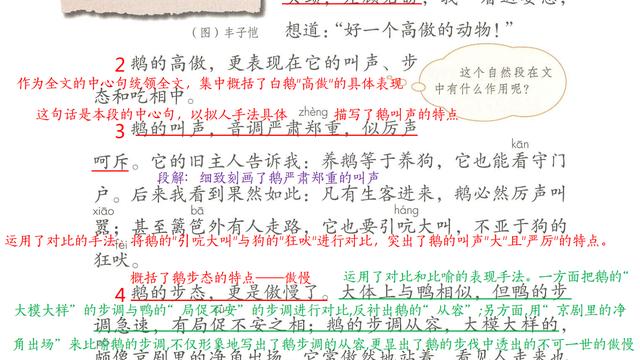 （图）丰子恺
想道：“好一个高傲的动物！”
2 鹅的高傲，更表现在它的叫声、步
作为全文的中心句统领全文，集中概括了白鹅"高傲"的具体表现
态和吃相中。
这个自然段在文
中有什么作用呢？
这句话是本段的中心句，以拟人手法具体 描写了鹅叫声的特点
zhèng
3 鹅的叫声，音调严肃郑重，似厉声
kān
呵斥。它的旧主人告诉我：养鹅等于养狗，它也能看守门
段解：细致刻画了鹅严肃郑重的叫声
户。后来我看到果然如此：凡有生客进来，鹅必然厉声叫
xiāo bā háng
嚣；甚至篱笆外有人走路，它也要引吭大叫，不亚于狗的
运用了对比的手法。将鹅的"引吭大叫"与狗的"狂吠"进行对比，突出了鹅的叫声"大"且"严厉"的特点。
fèi
狂吠。
概括了鹅步态的特点——傲慢
运用了对比和比喻的表现手法。一方面把鹅的"
4 鹅的步态，更是傲慢了。大体上与鸭相似，但鸭的步
大模大样"的步调与鸭的"局促不安"的步调进行对比,反衬出鹅的"从容";另方面,用"京剧里的净
调急速，有局促不安之相；鹅的步调从容，大模大样的，
角出场"来比喻鹅的步调,不仅形象地写出了鹅步调的从容,更显出了鹅的步伐中透出的不可一世的傲慢
颇像京剧里的净角出场。它常傲然地站着，看见人走来也